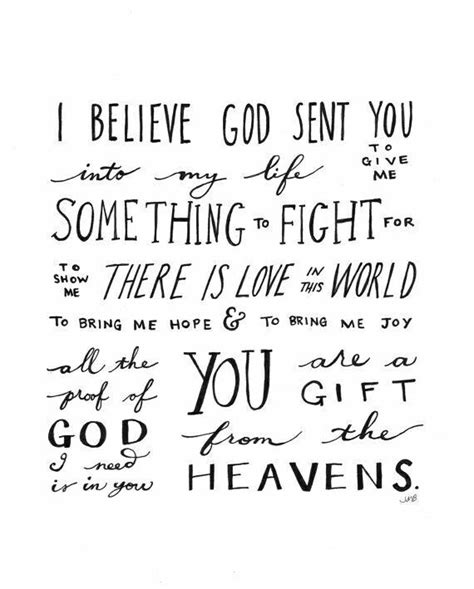 I BELIEVE GOD SENT YOU
into my life TO GIVE ME
SOMETHING TO FIGHT FOR
TO SHOW ME THERE IS LOVE IN THIS WORLD
TO BRING ME HOPE & TO BRING ME JOY
all the
proof of
GOD
I need
is in you
YOU are a
GIFT
from the
HEAVENS.
JMB